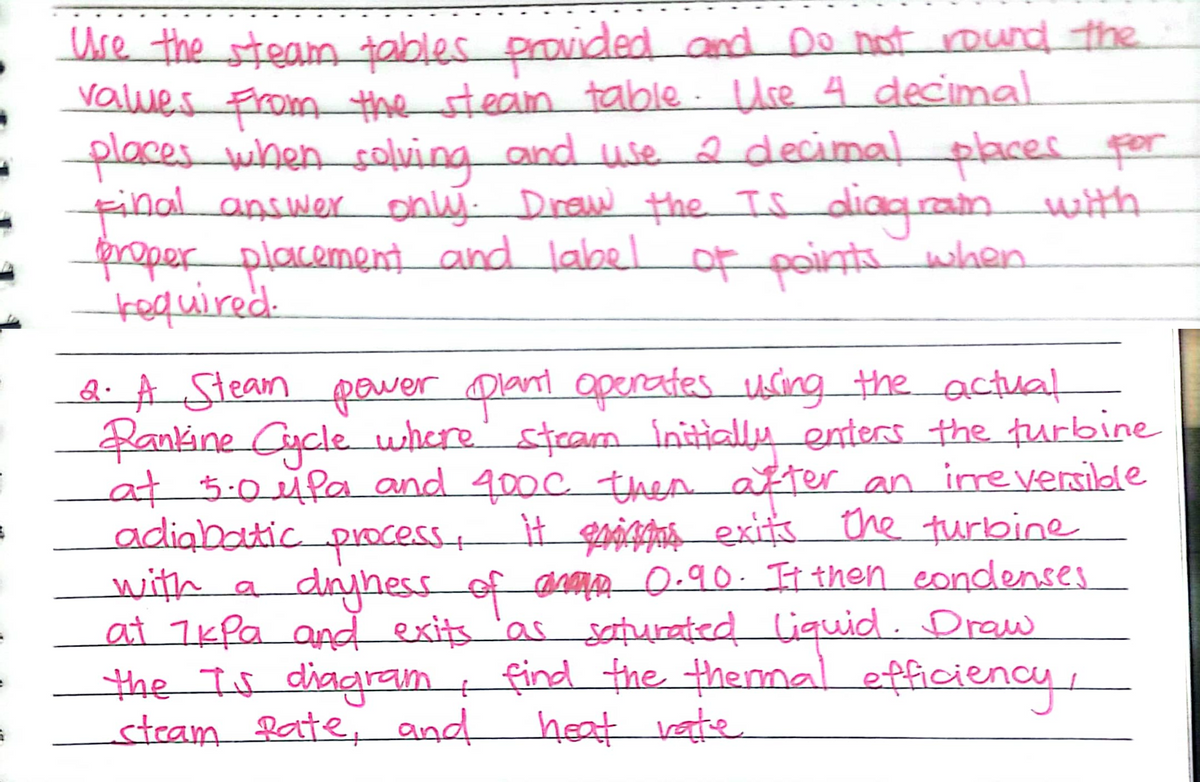 Use the steam tables provided and Do not round the
values from the steam table. Use 4 decimal
places when solving and use 2 decimal places for
final answer only. Draw the TS diagram with
proper placement and label of points when
required.
2. A Steam power plant operates using the actual
Rankine Cycle where steam initially enters the turbine
at 5.0 MPa and 400C then after an irreversible
adiabatic process, it exits the turbine
with a dryness of 0.90. It then condenses
at 7kPa and exits as saturated liquid. Draw
the Ts diagram, find the thermal efficiency,
steam Rate, and heat rate